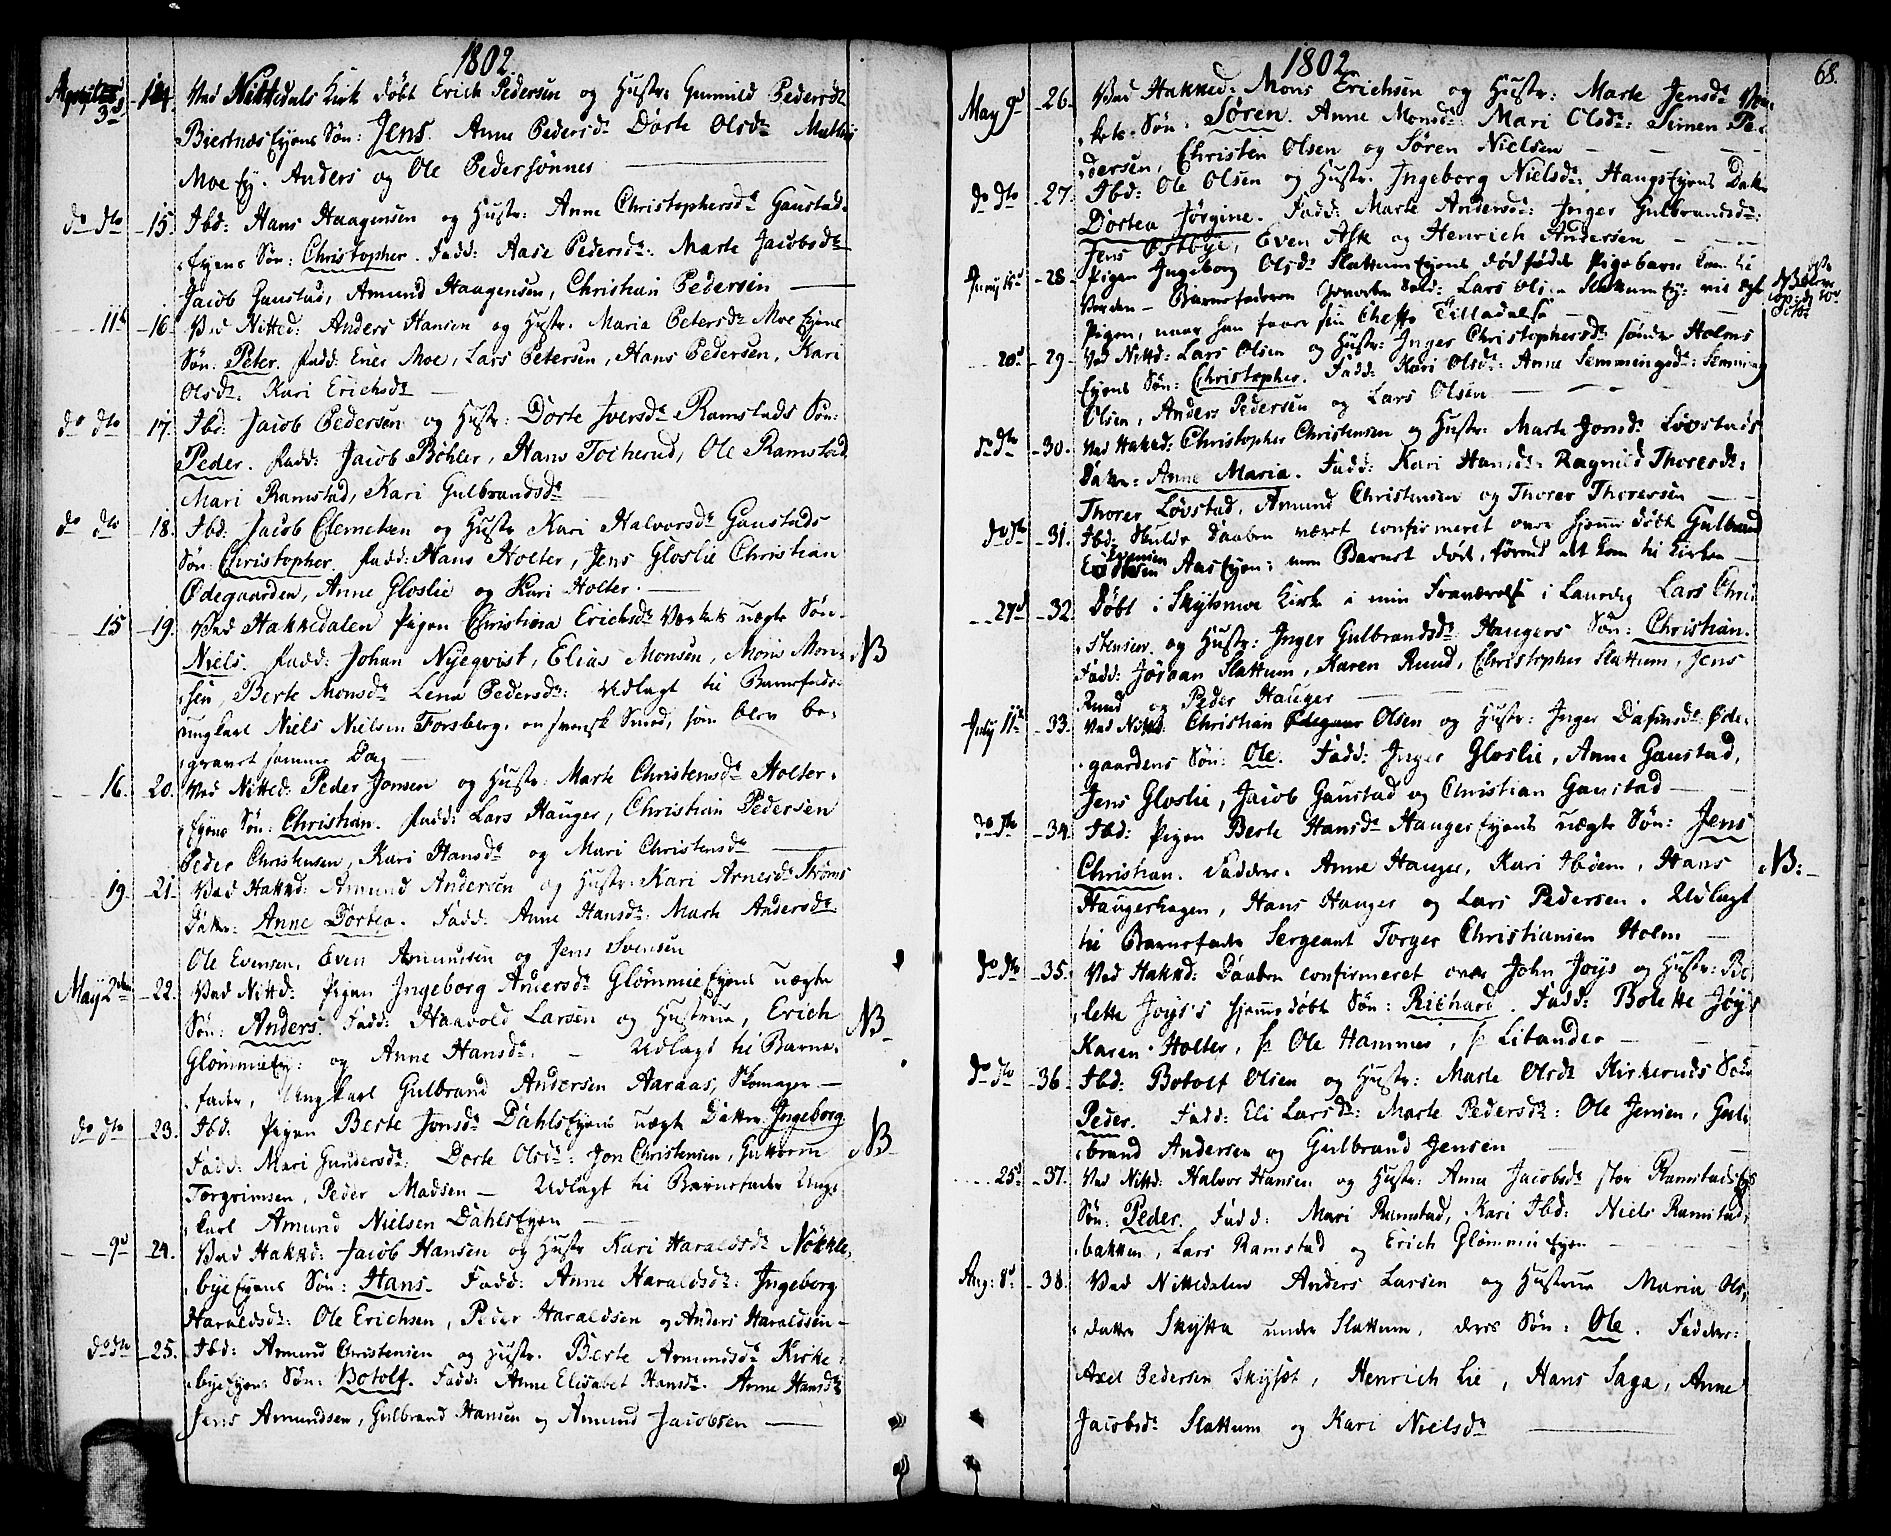 1802
Aprilis 3d 14. Ved Nittedals Kirk døbt Erich Pedersen og Hustr: Gunnild Pedersdr
Biertnæs Eyens Søn: Jens. Anne Pedersdr Dorte Olsdr
Moe Ey. Anders og Ole Pedersønnes
do dto 15. Ibd: Hans Haagensen og Hustr: Anne Christophersdr Gaustad-
Eyens Søn: Christopher. Fadd: Aase Pedersdr: Marte Jacobsdr
Jacob Gaustad, Amund Haagensen, Christian Pedersen
11t 16. Ved Nitted: Anders Hansen og Hustr: Maria Petersdr Moe Eyens
Søn: Peter. Fadd: Ener Moe, Lars Petersen, Hans Pedersen, Kari
Olsdr. Kari Erichsdr
do dto 17. Ibd: Jacob Pedersen og Hustr: Dorte Iversdr Ramstads Søn:
Peder. Fadd: Jacob Bøhler, Hans Tocherud, Ole Ramstad
Mari Ramstad, Kari Gulbrandsdr
do dto 18. Ibd: Jacob Clemetsen og Hustr Kari Halvorsdr Gaustads
Søn: Christopher. Fadd: Hans Holter, Jens Gloslie Christian
Ødegaarden, Anne Gloslie og Kari Holter.
15 19. Ved Hakkedalen Pigen Christina Erichsdr Verkets uægte Søn
Niels. Fadd: Johan Nyeqvist, Elias Monsen, Mons Mon- NB
sen, Berte Monsdr Lena Pedersdr: Udlagt til Barnefader
ungkarl Niels Nielsen Forsberg, en svensk Smed, som blev be-
gravet samme Dag
16. 20. Ved Nitted: Peder Jonsen og Hustr: Marte Christensdr Holter-
Eyens Søn: Christian. Fadd: Lars Hauger, Christian Pedersen
Peder Christensen, Kari Hansdr og Mari Christensdr
19. 21. Ved Hakkd: Amund Andersen og Hustr: Kari Arnesdr Strøms
Datter: Anne Dortea. Fadd: Anne Hansdr: Marte Andersdr
Ole Evensen, Even Asmundsen og Jens Svensen
May 2den 22. Ved Nittd: Pigen Ingeborg Andersdr Glømmie Eyens uægte
Søn: Anders. Fadd: Haavold Larsen og Hustrue, Erich NB
Glømmie Ey: og Anne Hansdr. Udlagt til Barne-
fader, Ungkarl Gulbrand Andersen Aaraas, Skomager
do dto 23. Ibd: Pigen Berte Jonsdr Dahls Eyens uægte Datter Ingeborg
Fadd: Mari Gundersdr: Dorte Olsdr: Jon Christensen, Guttorm NB
Torgrimsen, Peder Madsen Udlagt til Barnefader Ung-
karl Amund Nielsen Dahls Eyen
9d 24. Ved Hakkd: Jacob Hansen og Hustr Kari Haraldsdr Nøkkle-
bye Eyens Søn: Hans. Fadd: Anne Haraldsdr: Ingeborg
Haraldsdr: Ole Erichsen, Peder Haraldsen og Anders Haraldsen
do dto 25. Ibd: Asmund Christensen og Hustr. Berte Asmundsdr Kirke-
bye Eyens Søn: Botolf. Fadd: Anne Elisabet Hansdr. Anne Hansdr
Jens Amundsen, Gulbrand Hansen og Amund Jacobsen
1802 68.
May 9d 26. Ved Hakked: Mons Erichsen og Hustr: Marte Jensdr Ver-
kets Søn: Søren. Anne Monsdr: Mari Olsdr: Simen Pe-
dersen, Christen Olsen og Søren Nielsen
do dto 27. Ibd: Ole Olsen og Hustr. Ingeborg Nielsdr: Haugs Eyens Datter
Dortea Jørgine. Fadd: Marte Andersdr: Inger Gulbrandsdr:
Jens Østbye, Even Ask og Henrich Andersen
28. Pigen Ingeborg Olsdr Slattum Eyens dødfødde Pigebarn kom til
Verden Barnefaderen Lars Olsen Slattum Ey: vil ægte
Pigen, naar han faaer sin Chefs Tilladelse
20d 29. Ved Nittd: Lars Olsen og Hustr: Inger Christophersdr søndr Holms
Eyens Søn: Christopher. Fadd: Kari Olsdr: Anne Semmingsdr: Semming
Olsen, Anders Pedersen og Lars Olsen
do dto 30. Ved Hakkd: Christopher Christensen og Hustr: Marte Jonsdr Løvstads
Datter: Anne Maria. Fadd: Kari Hansdr. Ragnild Thoresdr:
Thorer Løvstad, Amund Christensen og Thorer Thorersen
do dto 31. Ibd: Skulde Daaben været confirmeret over hjemmedøbt Gulbrand
Evensen Aas Eyen: men Barnet døde, førend det kom til Kirken
27d 32. Døbt i Skytsmoe Kirk i min Fraværelse i Laurdag Lars Chri-
stensen og Hustr: Inger Gulbrandsdr Haugers Søn: Christian.
Fadd: Jøraan Slattum, Karen Ruud, Christopher Slattum, Jens
Ruud og Peder Hauger
July 11t 33. Ved Nittd: Christian Olsen og Hustr: Inger Dafinsdr Øde-
gaardens Søn: Ole. Fadd: Inger Gloslie, Anne Gaustad,
Jens Gloslie, Jacob Gaustad og Christian Gaustad
do dto 34. Ibd: Pigen Berte Hansdr Hauger Eyens uægte Søn: Jens
Christian. Faddere. Anne Hauger, Kari Ibidem, Hans NB:
Haugerhagen, Hans Hauger og Lars Pedersen. Udlagt
til Barnefader Sergeant Torger Christiansen Holm
do dto 35. Ved Hakkd: Daaben confirmeret over John Joys og Hustr: Bo-
lette Joys's hjemmedøbt Søn: Richard. Fadd: Bolette Joys
Karen Holter, hr Ole Hammer, hr Litander
do dto 36. Ibd: Botolf Olsen og Hustr: Marte Olsdr Kirkeruds Søn
Peder. Fadd: Eli Larsdr: Marte Pedersdr: Ole Jensen, Gul-
brand Andersen og Gulbrand Jensen
25d 37. Ved Nittd: Halvor Hansen og Hustr: Anna Jacobsdr stor Ramstads Eys
Søn: Peder. Fadd: Mari Ramstad, Kari Ibd: Niels Ramstad-
bakken, Lars Ramstad og Erich Glømmie Eyen
Aug: 8d 38. Ved Nittedalen Anders Larsen og Hustrue Maria Ols-
datter Skytta under Slattum, deres Søn: Ole. Faddere:
Axel Pedersen Skyset, Henrich Lie, Hans Saga, Anne
Jacobsdr Slattum og Kari Nielsdr